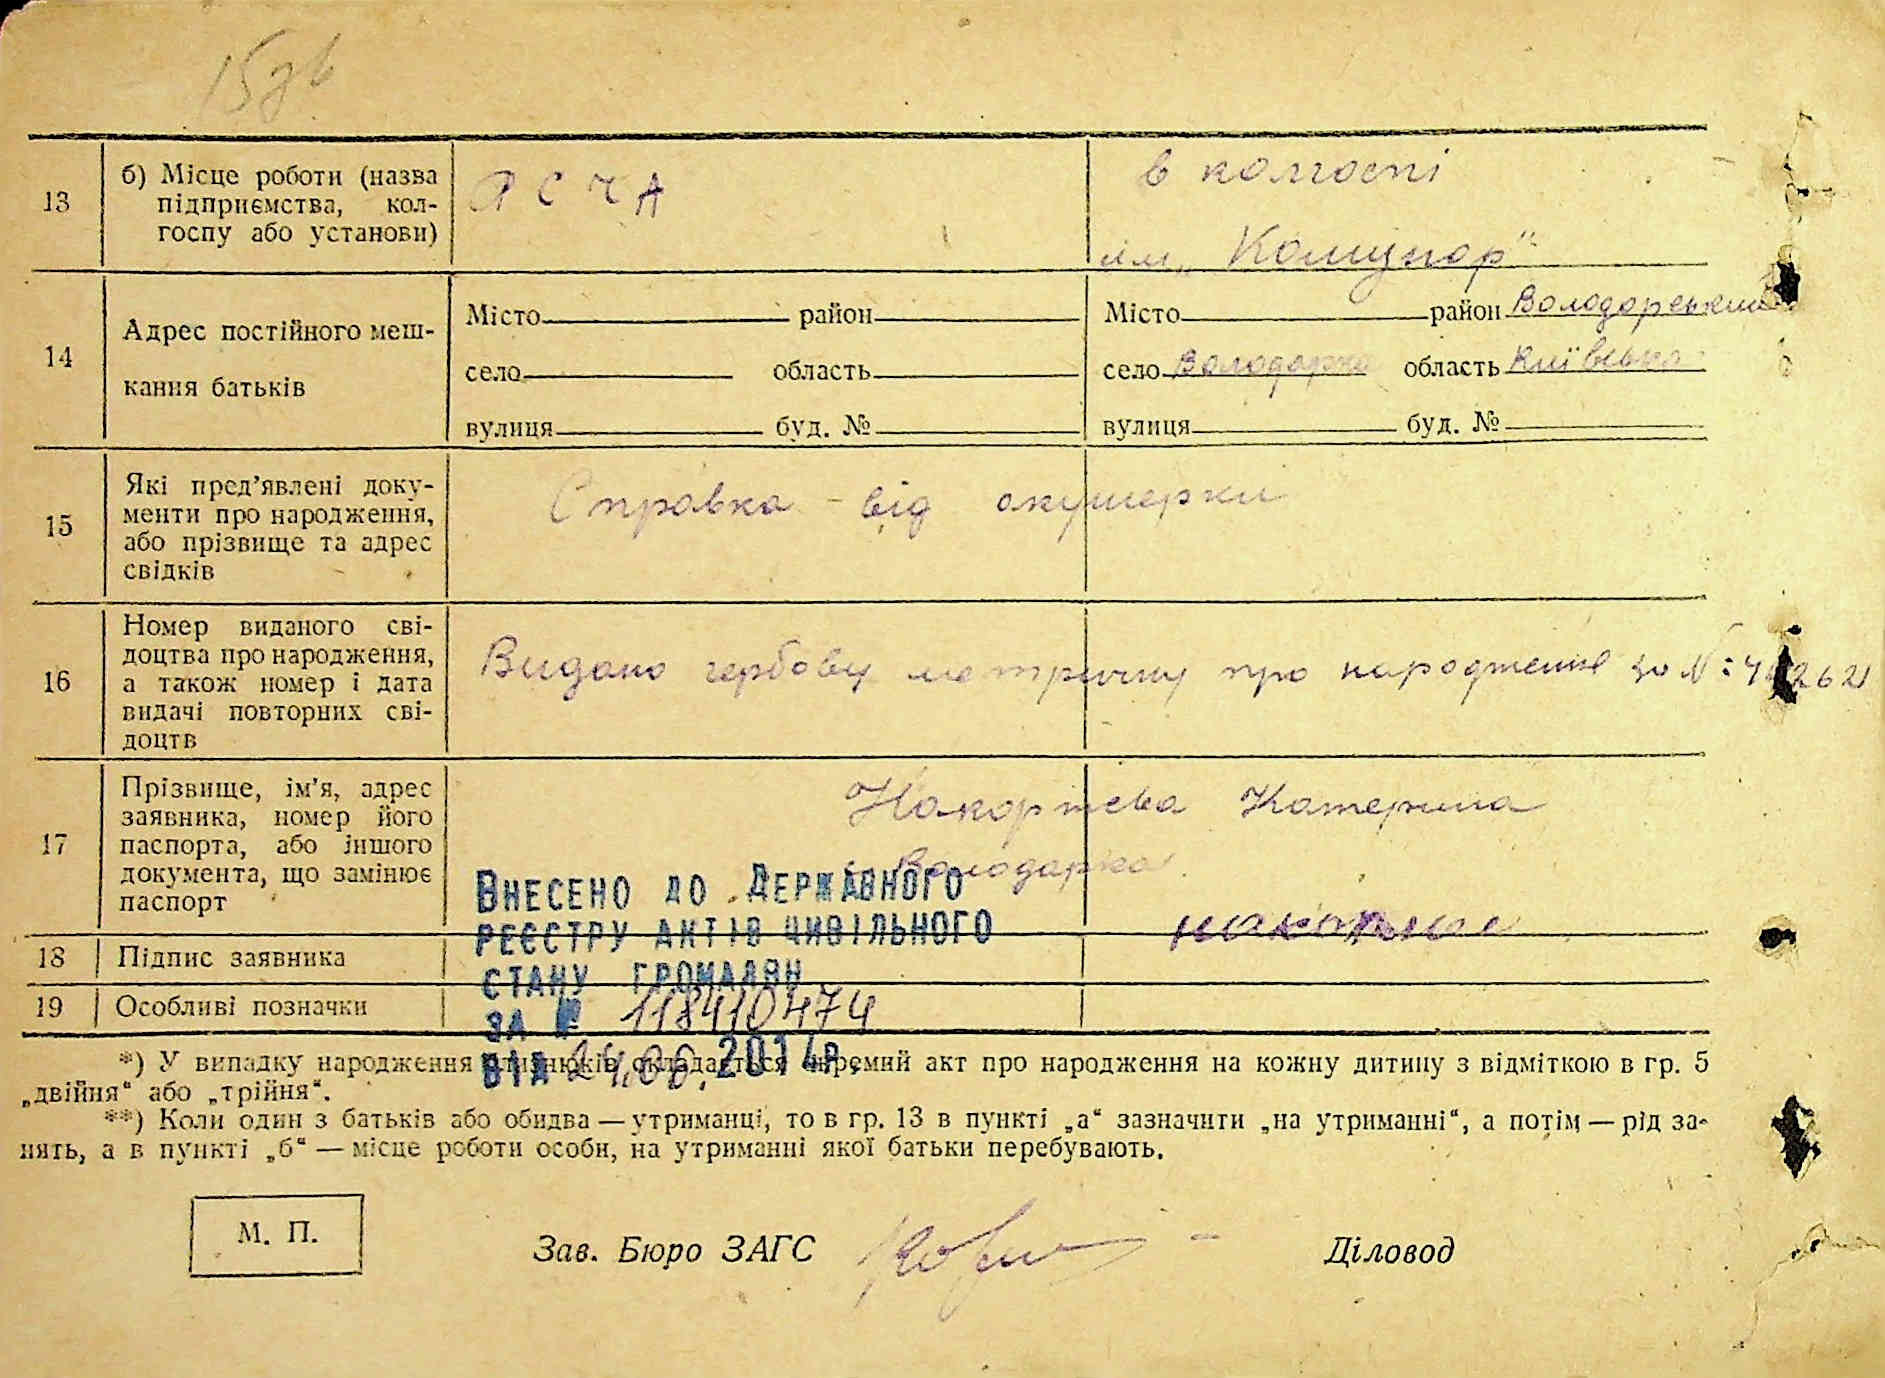 15зв
13
б) Місце роботи (назва
підприємства, кол-
госпу або установи)
Р С Ч А
в колгоспі
ім „Комунор"
14
Адрес постійного меш-
кання батьків
Місто район
село область
вулиця буд. №
Місто район Володарський
село Володарка область Київська
вулиця буд. №
15
Які пред’явлені доку-
менти про народження,
або прізвище та адрес
свідків
Справка - від окушерки
16
Номер виданого сві-
доцтва про народження,
а також номер і дата
видачі повторних сві-
доцтв
Видано гербову метричну про народження за №
17
Прізвище, ім’я, адрес
заявника, номер його
паспорта, або іншого
документа, що замінює
паспорт
Катерина
Володарка
18
Підпис заявника
19
Особливі позначки
Внесено до Державного
реєстру актів цивільного
стану громадян
за № 118410474
від 24.06.2014р.
*) У випадку народження близнюків складається окремий акт про народження на кожну дитину з відміткою в гр. 5
„двійня“ або „трійня“.
**) Коли один з батьків або обидва — утриманці, то в гр. 13 в пункті „а“ зазначити „на утриманні“, а потім — рід за-
нять, а в пункті „б“ — місце роботи особи, на утриманні якої батьки перебувають.
М. П.
Зав. Бюро ЗАГС
Діловод